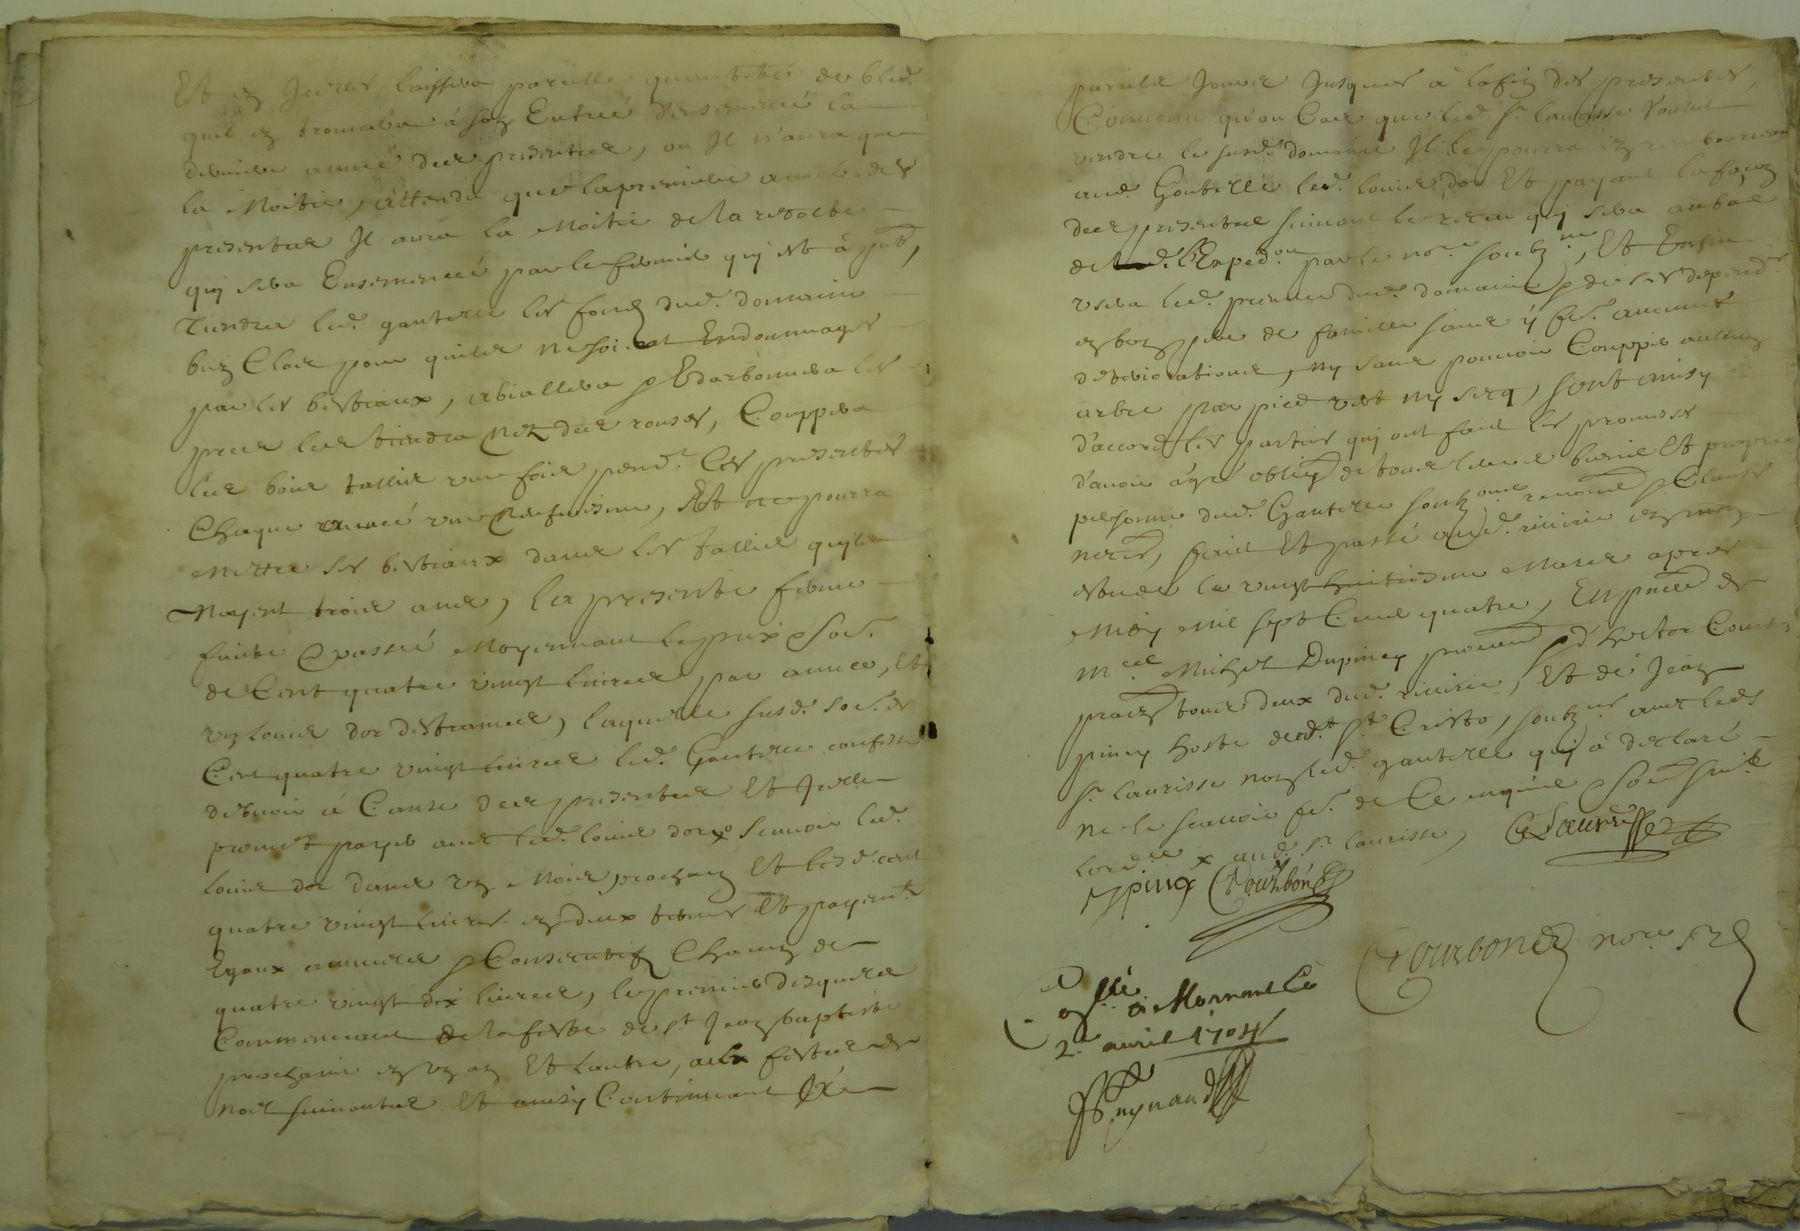 Et en Icelles laissera pareille quantité de bled
quil en trouvera à son Entrée d'ensemencé la
derniere année des presentes, ou Il n'aura que
la Moitié, attendu que la premiere année des
presentes Il aura la Moitié de la recolte
qui sera Ensemencée par le fermier qui est à pnt,
Tiendra led. gauterel les fonds dud. domaine
bien Clos pour quils ne soient Endommagés
par les bestiaux, abiallera & Edarbonnera les
prez les tiendra nez des ronses, Couppera
les bois tallis une fois pend. Ces presentes
Chaque année une , Et ne pourra
Mettre ses bestiaux dans les tallis quils
Nayent trois ans, La presente ferme
faitte & passée Moyennant le prix & So.
de Cent quatre vingt livres par année, Et
un louis dor destraines, laquelle susd. So. de
Cent quatre vingt livres led. Gauterel confesse
debvoir à Cause des presentes Et Icelle
promet payer avec led. louis dor x Scavoir led.
louis dor dans un Mois prochain Et lesd. cent
quatre vingt livres en deux termes Et payemts
Egaux annuels & Consecutifs Chacun de
quatre vingt dix livres, le premier desquels
Commencant de la feste de St Jean baptiste
prochaine en un an Et lautre, aux festes de
noel suivantes Et ainsy Continuant
 Jusques à la fin des presentes,
Convenu qu'en Cas que led. Sr laurisse voulut
vendre le susd. domaine Il le pourra en remboursant
aud. Gauterel led. louis dor Et payant la façon
des presentes suivant le receu qui sera au bas
de l'Exped.on par le nore. soubz.ne, Et Enfin
usera led. preneur dud. domaine & de ses depend.
en bon pere de famille sans y fe. aucunes
deteriorations, ny sans pouvoir Coupper aucun
arbre par pied vert ny secq, sont ainsy
d'accord les parties qui ont fait les promesses
d'avoir à gré oblign de tous leurs biens Et propre
personne dud. Gauterel soubz.ons renonc. & Clauses
necess, fait Et passé aud. riverie en mon
estude le vingt huitiesme Mars apres
Midy Mil sept Cens quatre, En pnce de
Me Michel Dupiney procureur & d hector Courbon
praen tous deux dud. riverie, Et de Jean
piney hoste de St Cristo, soubz.nes avec led.
Sr laurisse non led. gauterel qui à declaré
ne le scavoir fe. de Ce enquis & Somé suivt
lordce x aud. Sr laurisse, Delaurisse
JPiney Courbon
Courbon nore. rl
Con
ollé à Mornant Ce
2e avril 1704
Reynaud